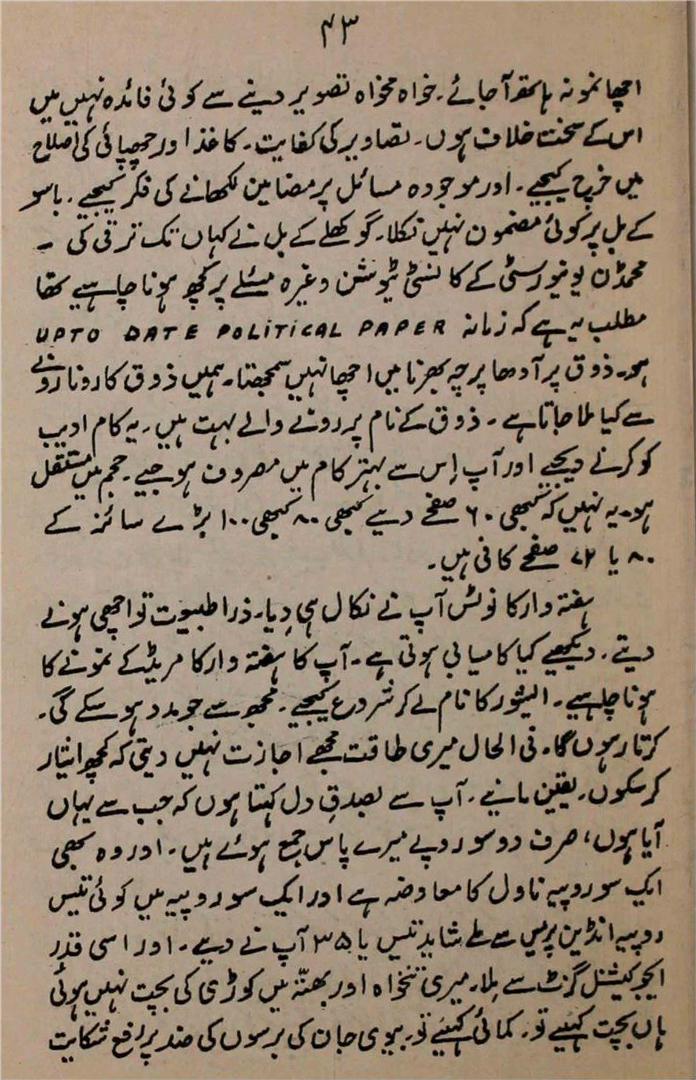 ۴۳
اچھا نمونہ ہاتھ آ جائے۔ خواہ مخواہ تصویر دینے سے کوئی فائدہ نہیں میں
اس کے سخت خلاف ہوں۔ تصاویر کی کفایت۔ کاغذ اور چھپائی کی اصلاح
میں خرچ کیجیے۔ اور موجودہ مسائل پر مضامین لکھانے کی فکر کیجیے۔ باسو
کے بل پر کوئی مضمون نہیں نکلا۔ گوکھلے کے بل نے کہاں تک ترقی کی ۔
محمڈن یونیورسٹی کے کانسٹی ٹیوشن وغیرہ مسئلے پر کچھ ہونا چاہیے تھا
مطلب یہ ہے کہ زمانہ UPTO DATE POLITICAL PAPER
ہو۔ ذوق پر آدھا پرچہ بھرنا میں اچھا نہیں سمجھتا۔ ہمیں ذوق کا رونا رونے
سے کیا ملا جاتا ہے۔ ذوق کے نام پر رونے والے بہت ہیں۔ یہ کام ادیب
کو کرنے دیجیے اور آپ اِس سے بہتر کام میں مصروف ہو جیے۔ حجم میں مستقل
ہو۔ یہ نہیں کہ کبھی ۶۰ صفحے دیے کبھی ۸۰ کبھی ۱۰۰ بڑے سائز کے
۸۰ یا ۷۲ صفحے کافی ہیں۔
ہفتہ وار کا نوٹس آپ نے نکال ہی دِیا۔ ذرا طبیعت تو اچھی ہونے
دیتے۔ دیکھیے کیا کامیابی ہوتی ہے۔ آپ کا ہفتہ وار کامریڈ کے نمونے کا
ہونا چاہیے۔ ایشور کا نام لے کر شروع کیجیے۔ مجھ سے جو مدد ہو سکے گی۔
کرتا رہوں گا۔ فی الحال میری طاقت مجھے اجازت نہیں دیتی کہ کچھ ایثار
کر سکوں۔ یقین مانیے۔ آپ سے بصدقِ دل کہتا ہوں کہ جب سے یہاں
آیا ہوں، صرف دو سو روپے میرے پاس جمع ہوئے ہیں۔ اور وہ بھی
ایک سو روپیہ ناول کا معاوضہ ہے اور ایک سو روپیہ میں کوئی تیس
روپیہ انڈین پریس سے ملے شاید تیس یا ۳۵ آپ نے دیے۔ اور اسی قدر
ایجوکیشنل گزٹ سے مِلا۔ میری تنخواہ اور بھتّہ میں کوڑی کی بچت نہیں ہوئی
ہاں بچت کہیے تو۔ کمائی کہیے تو۔ بیوی جان کی برسوں کی ضد پر رفع شکایت